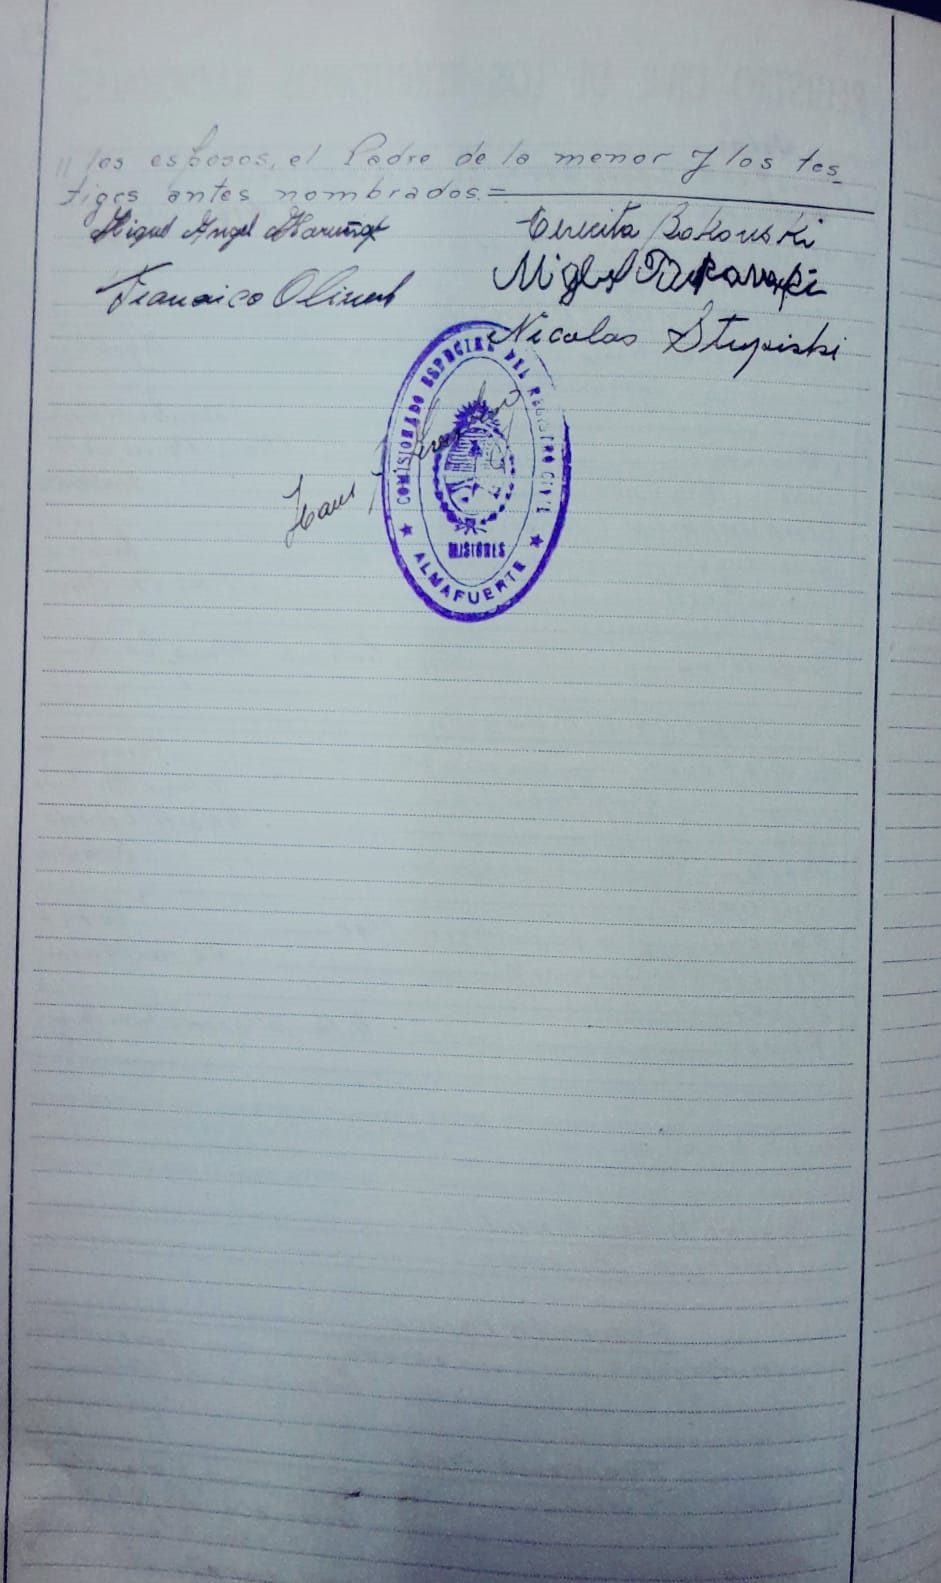 // los esposos, el Padre de la menor y los tes_
tigos antes nombrados.=
Miguel Angel
Terecita Bokouski
Francisco
Miguel
Nicolas Stupiski
Hans
COMISIONADO ESPECIAL DEL REGISTRO CIVIL
MISIONES
★ ALMAFUERTE ★